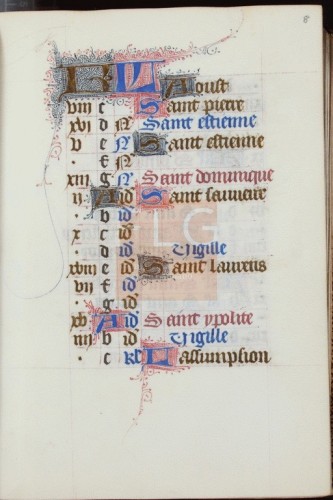 8
KL Aoust
viii c Saint pierre
xvi d N Saint estienne
v e N Saint estienne
. f N
xiii g N Saint dominique
ii A id Saint sauueire
. b id
x c id
. d id Vigille
xviii e id Saint laurens
vii f id
. g id
xv A id Saint ypolite
iiii b id Vigille
. c kl Lassumpsion
LG